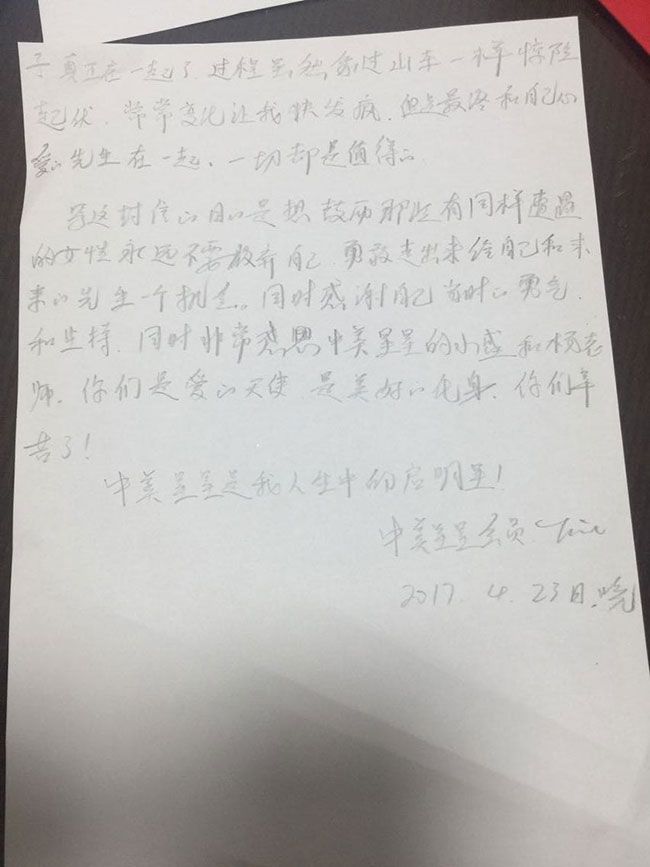 子真正在一起了。过程虽然象过山车一样惊险
起伏，常常变化让我快发疯，但是最终和自己心
爱的先生在一起、一切却是值得的。
写这封信的目的是想鼓励那些有同样遭遇
的女性永远不要放弃自己，勇敢走出来给自己和未
来的先生一个机会。同时感谢自己当时的勇气，
和坚持，同时非常感恩中美星星的小感和杨老
师，你们是爱的天使 是美好的化身，你们辛
苦了！
中美星星是我人生中的启明星！
中美星星会员
2017. 4. 23日.晓